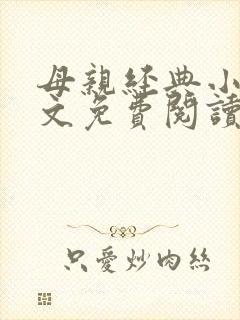 母親經典小
文免費閱讀
只愛炒肉絲